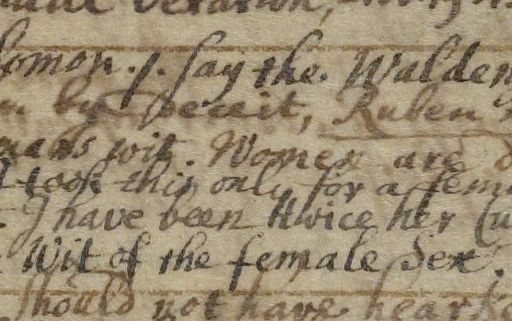 lomon. I. say the. Walden
by Deceit, Ruben
mans wit. Women are
took this only for a fem
I have been twice her Cu
Wit of the female Sex.
should not have heark